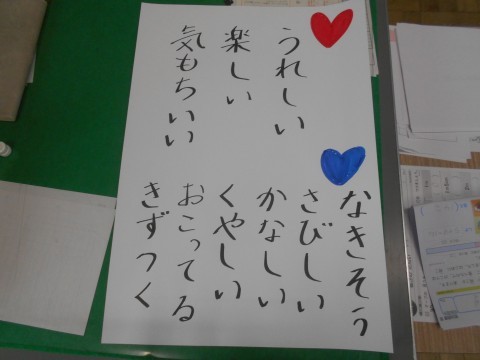 うれしい
楽しい
気もちいい
なきそう
さびしい
かなしい
くやしい
おこってる
きずつく